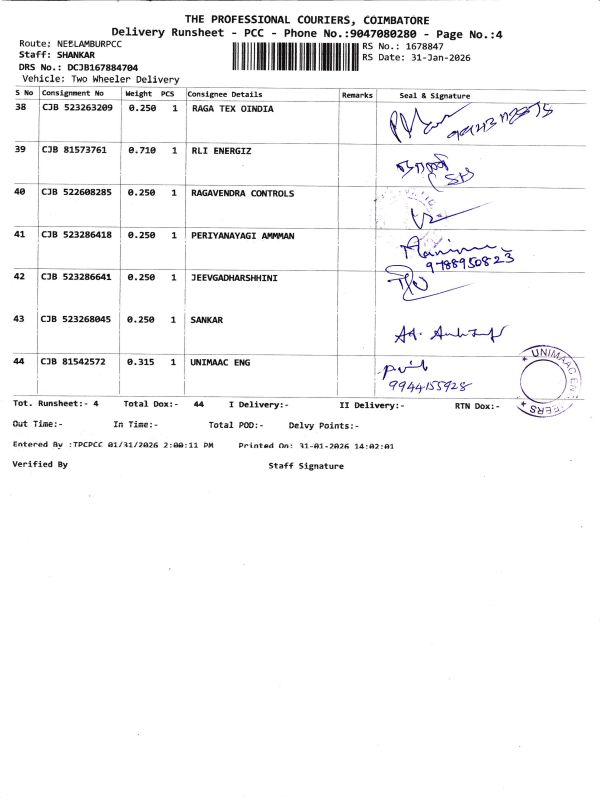 THE PROFESSIONAL COURIERS, COIMBATORE
Delivery Runsheet - PCC - Phone No.:9047080280 - Page No.:4
Route: NEELAMBURPCC
RS No.: 1678847
Staff: SHANKAR
RS Date: 31-Jan-2026
DRS No.: DCJB167884704
Vehicle: Two Wheeler Delivery
S No Consignment No Weight PCS Consignee Details Remarks Seal & Signature
38 CJB 523263209 0.250 1 RAGA TEX OINDIA
39 CJB 81573761 0.710 1 RLI ENERGIZ
40 CJB 522608285 0.250 1 RAGAVENDRA CONTROLS
41 CJB 523286418 0.250 1 PERIYANAYAGI AMMMAN
9788950823
42 CJB 523286641 0.250 1 JEEVGADHARSHHINI
43 CJB 523268045 0.250 1 SANKAR
44 CJB 81542572 0.315 1 UNIMAAC ENG
9944155928
UNIMAAC EN
EERS
Tot. Runsheet:- 4 Total Dox:- 44 I Delivery:- II Delivery:- RTN Dox:-
Out Time:- In Time:- Total POD:- Delvy Points:-
Entered By :TPCPCC 01/31/2026 2:00:11 PM Printed On: 31-01-2026 14:02:01
Verified By Staff Signature